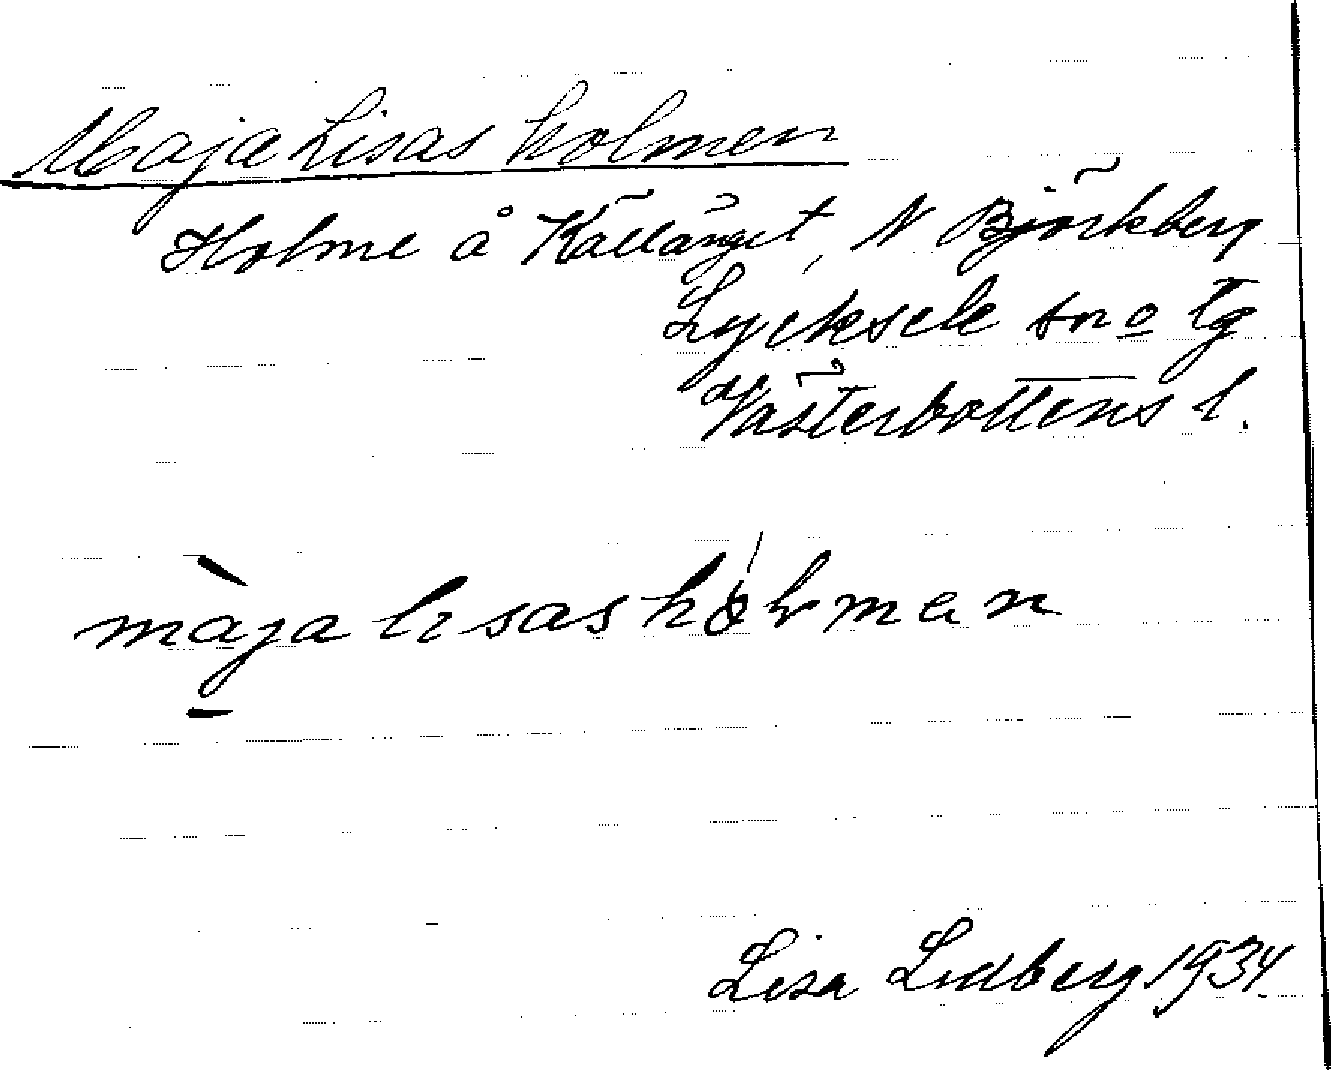 Maja Lisas holmen
Holme å Källänget, N Björkberg
Lycksele sn o tg
Västerbottens l.
màja lisas hólman
Lisa Lidberg 1934